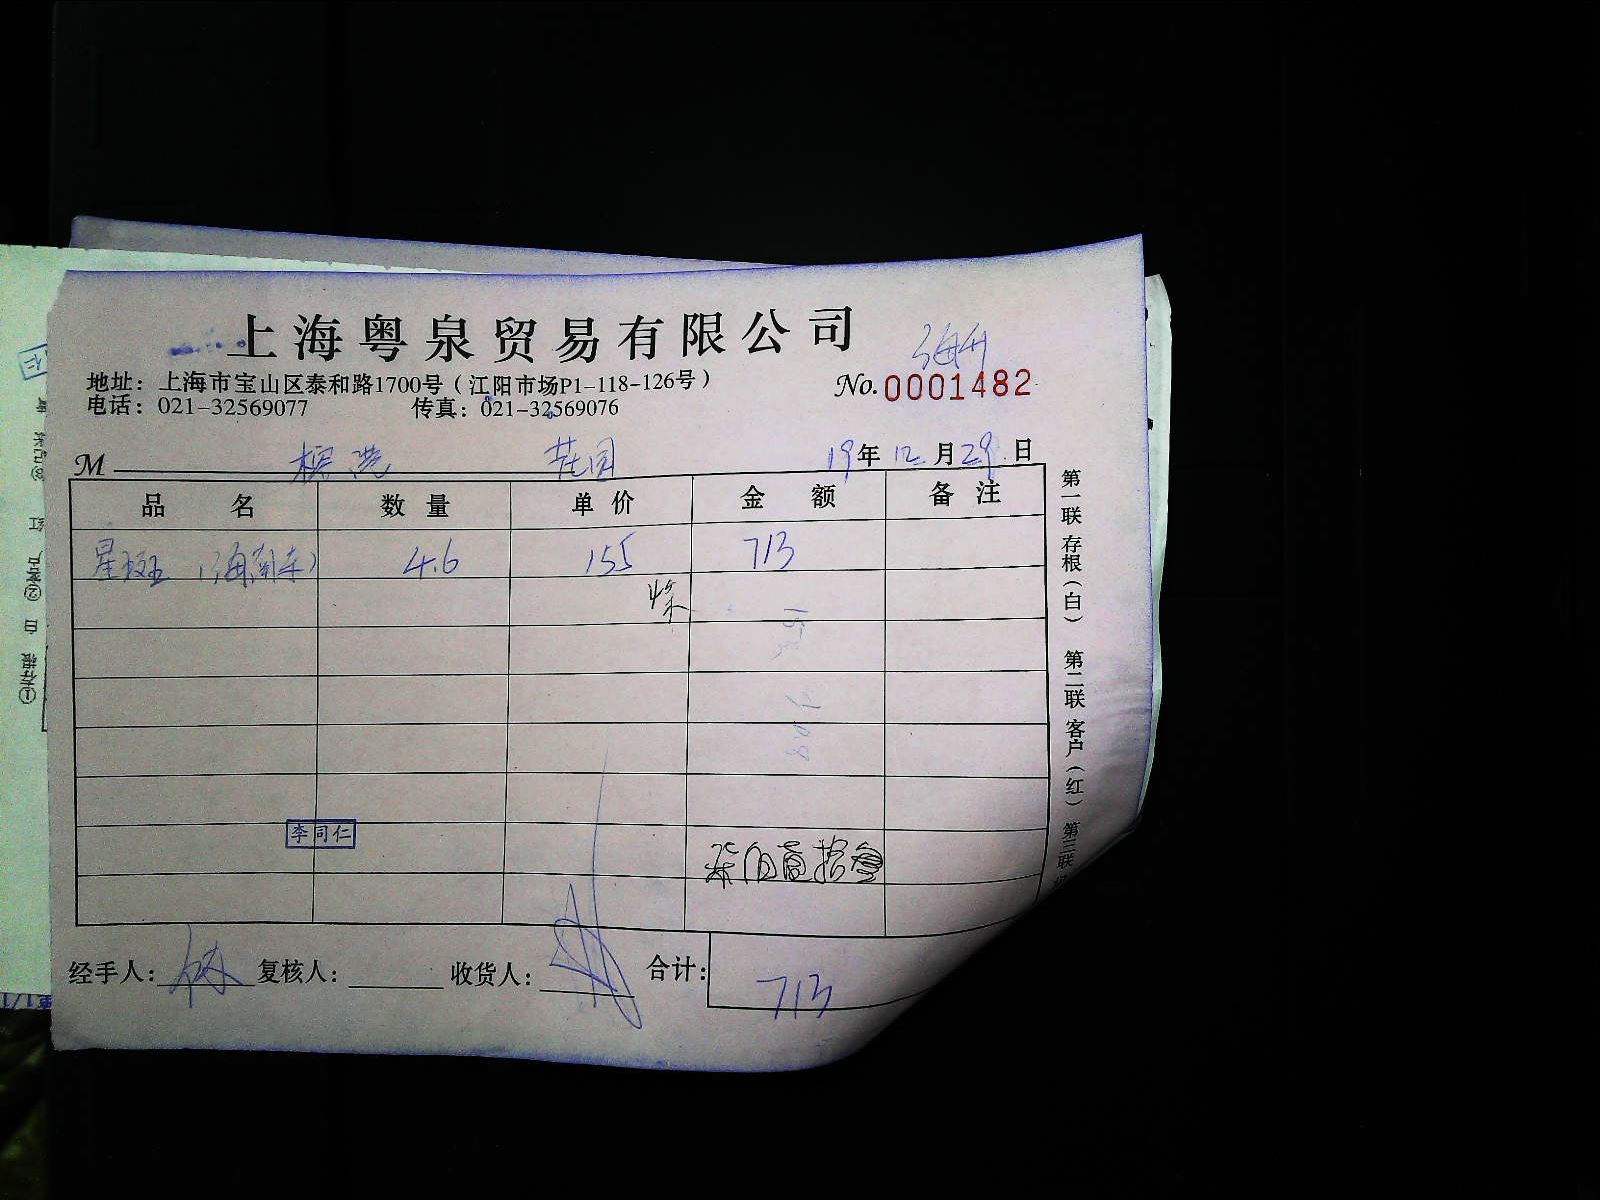 上海粤泉贸易有限公司
地址：上海市宝山区泰和路1700号（江阳市场P1-118-126号）
No.0001482
电话：021-32569077 传真：021-32569076
M 花园 19年12月29日
品名 数量 单价 金额 备注
星斑（海南车） 4.6 155 713
李同仁
柒佰壹拾叁
经手人： 复核人： 收货人： 合计： 713
第一联 存根（白） 第二联 客户（红） 第三联
①存根 白 ②客户 红